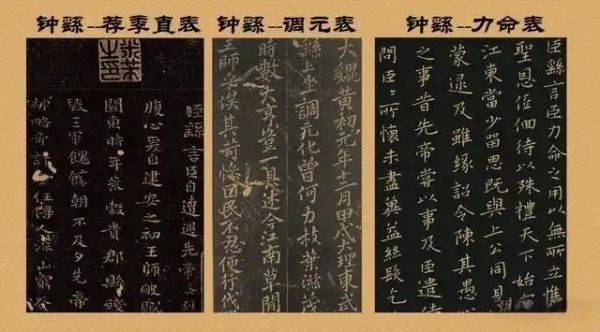 钟繇--荐季直表
臣繇言臣自遭遇先帝忝列
腹心爰自建安之初王師破賊
關東時年荒穀貴郡縣殘
毀三軍餽饟朝不及夕先帝
神略奇計委任得人深山窮谷
钟繇--调元表
大魏黄初元年十二月甲戌大理東武
繇上 調元化曾何力枝葉滋茂
時數大亨豈一具述今江南草閒
王師 俟其苛惱回民不忍便行伐
钟繇--力命表
臣繇言臣力命之用以無所立惟
聖恩俯佪待以殊禮天下始
江東當少留思既與上公同見
蒙逮及雖緣詔令陳其愚
之事昔先帝嘗以事及臣遣侍
問臣〻所懷未盡冀益絲髮乞